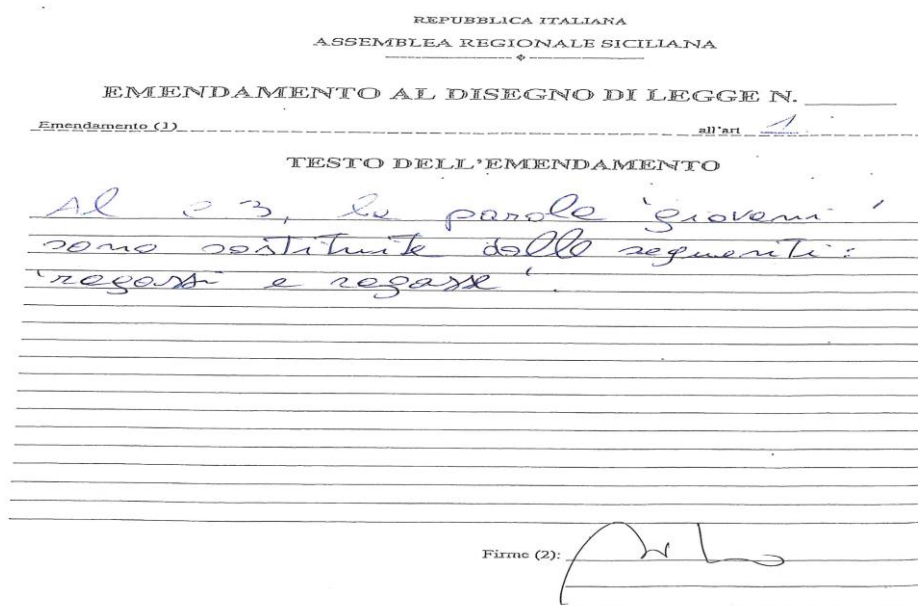 REPUBBLICA ITALIANA
ASSEMBLEA REGIONALE SICILIANA
EMENDAMENTO AL DISEGNO DI LEGGE N.
Emendamento (1) all'art 1
TESTO DELL'EMENDAMENTO
Al c 3, le parole 'giovani'
sono sostituite dalle seguenti:
'ragazzi e ragazze'.
Firme (2):